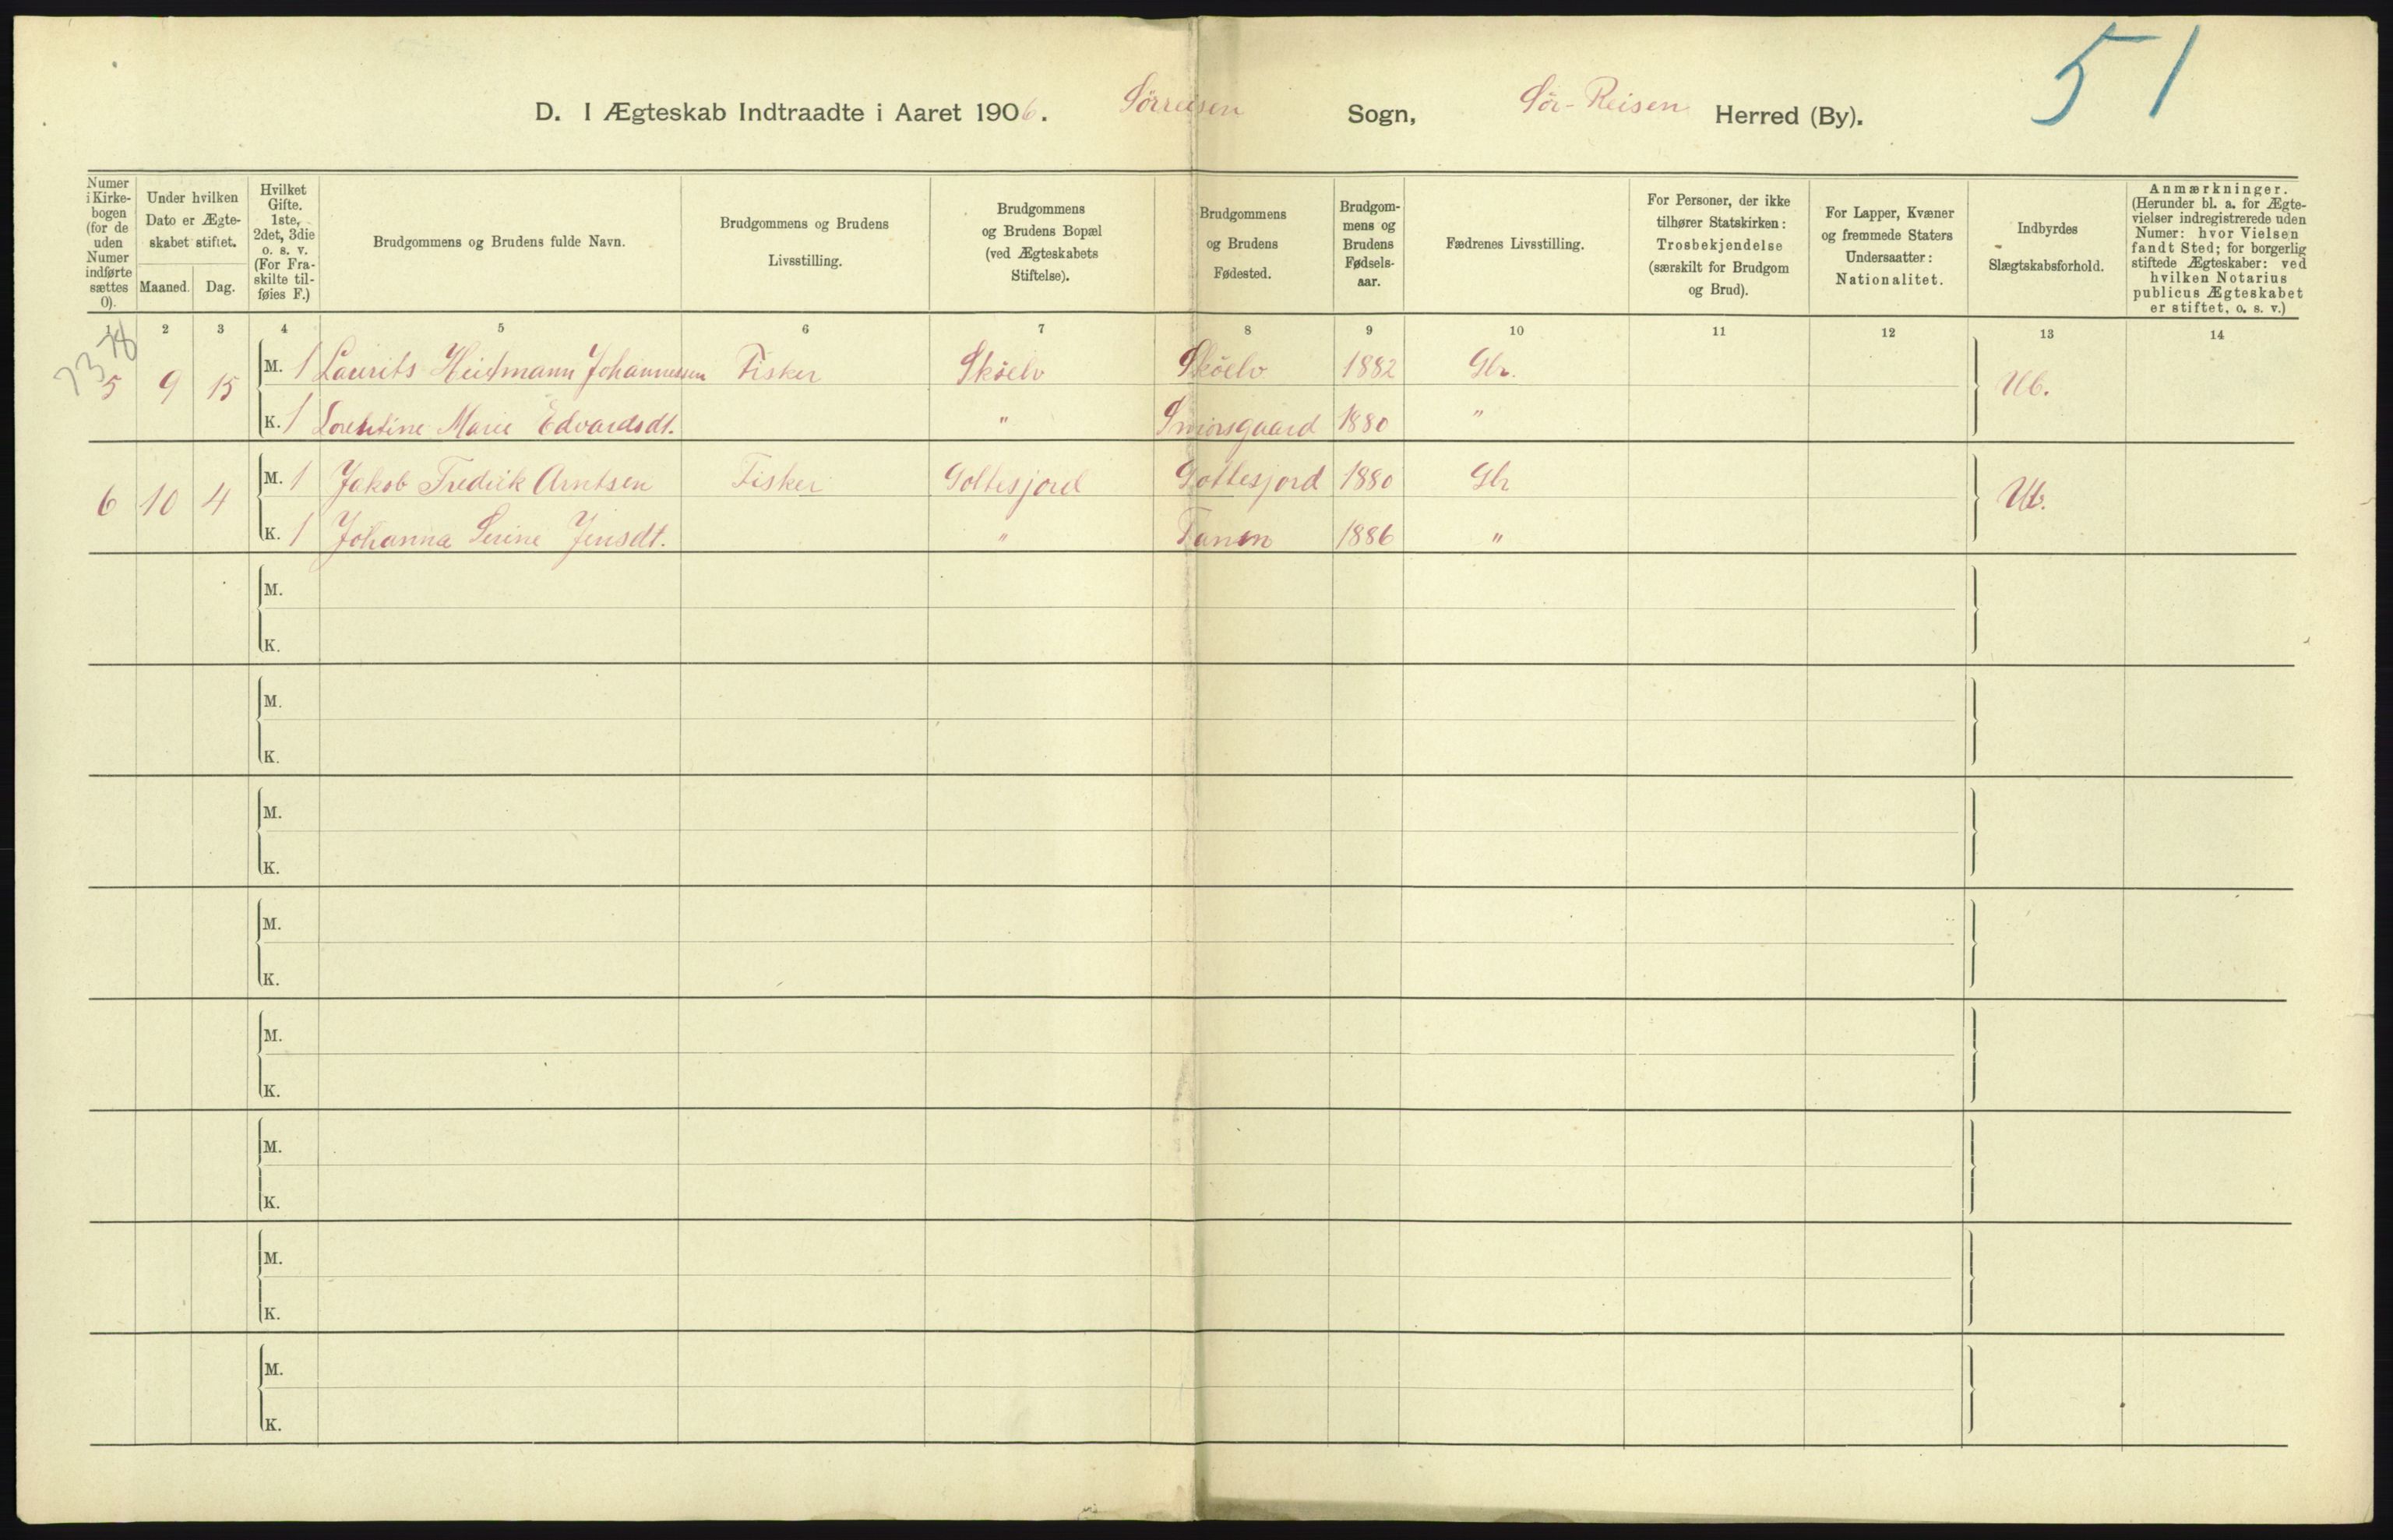 51
D. I Ægteskab Indtraadte i Aaret 1906. Sörreisen Sogn, Sör-Reisen Herred (By).
Numer i Kirke-bogen (for de uden Numer indførte sættes 0).
Under hvilken Dato er Ægte-skabet stiftet.
Maaned. Dag.
Hvilket Gifte. 1ste, 2det, 3die o. s. v. (For Fra-skilte til-føies F.)
Brudgommens og Brudens fulde Navn.
Brudgommens og Brudens Livsstilling.
Brudgommens og Brudens Bopæl (ved Ægteskabets Stiftelse).
Brudgommens og Brudens Fødested.
Brudgom-mens og Brudens Fødsels-aar.
Fædrenes Livsstilling.
For Personer, der ikke tilhører Statskirken: Trosbekjendelse (særskilt for Brudgom og Brud).
For Lapper, Kvæner og fremmede Staters Undersaatter: Nationalitet.
Indbyrdes Slægtskabsforhold.
Anmærkninger. (Herunder bl. a. for Ægte-vielser indregistrerede uden Numer: hvor Vielsen fandt Sted; for borgerlig stiftede Ægteskaber: ved hvilken Notarius publicus Ægteskabet er stiftet, o. s. v.)
1 2 3 4 5 6 7 8 9 10 11 12 13 14
5 9 15 M. 1 Laurits Heitmann Johannessen Fisker Sköelv Sköelv 1882 Gbr. Ub.
K. 1 Lorentine Marie Edvardsdt. " 1880 "
6 10 4 M. 1 Jakob Fredrik Arntsen Fisker Gottesjord Gottesjord 1880 Gbr Ub.
K. 1 Johanna Serine Jensdt. " 1886 "
M.
K.
M.
K.
M.
K.
M.
K.
M.
K.
M.
K.
M.
K.
M.
K.